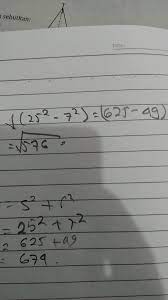 sebutkan:
√(25² - 7²) = (625 - 49)
= √576 =
= s² + r²
= 25² + r²
= 625 + 49
= 674.